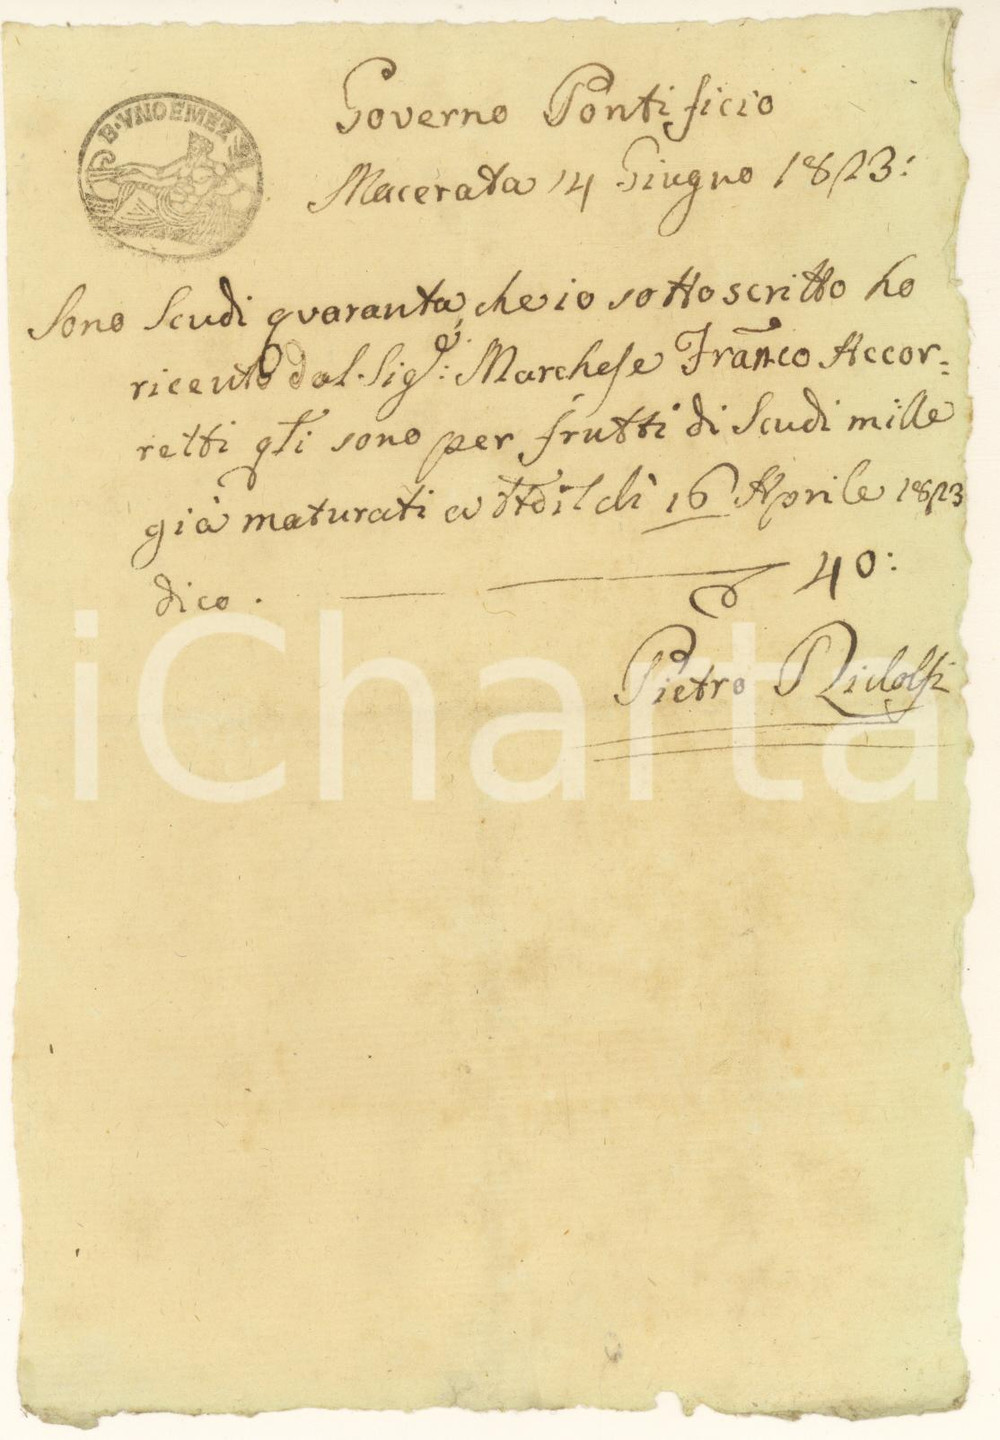 B·VNOEMEZ
Governo Pontificio
Macerata 14 Giugno 1823:
Sono Scudi quaranta, che io sottoscritto ho
riceuto dal Sig.e: Marchese Fran.co Accor=
retti q.li sono per frutti di Scudi mille
già maturati a tt.o il dì 16 Aprile 1823
dico. 40:
Pietro Ridolfi
iCharta